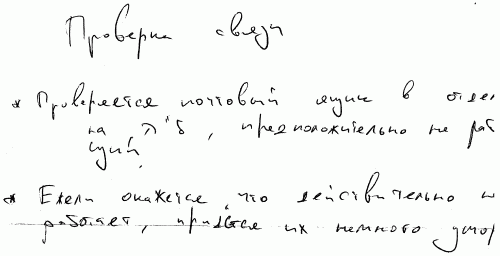 Проверка связи
* Проверяется почтовый ящик в отде
на , предположительно не раб
щий.
* Если окажется, что действительно н
работает, придется их немного